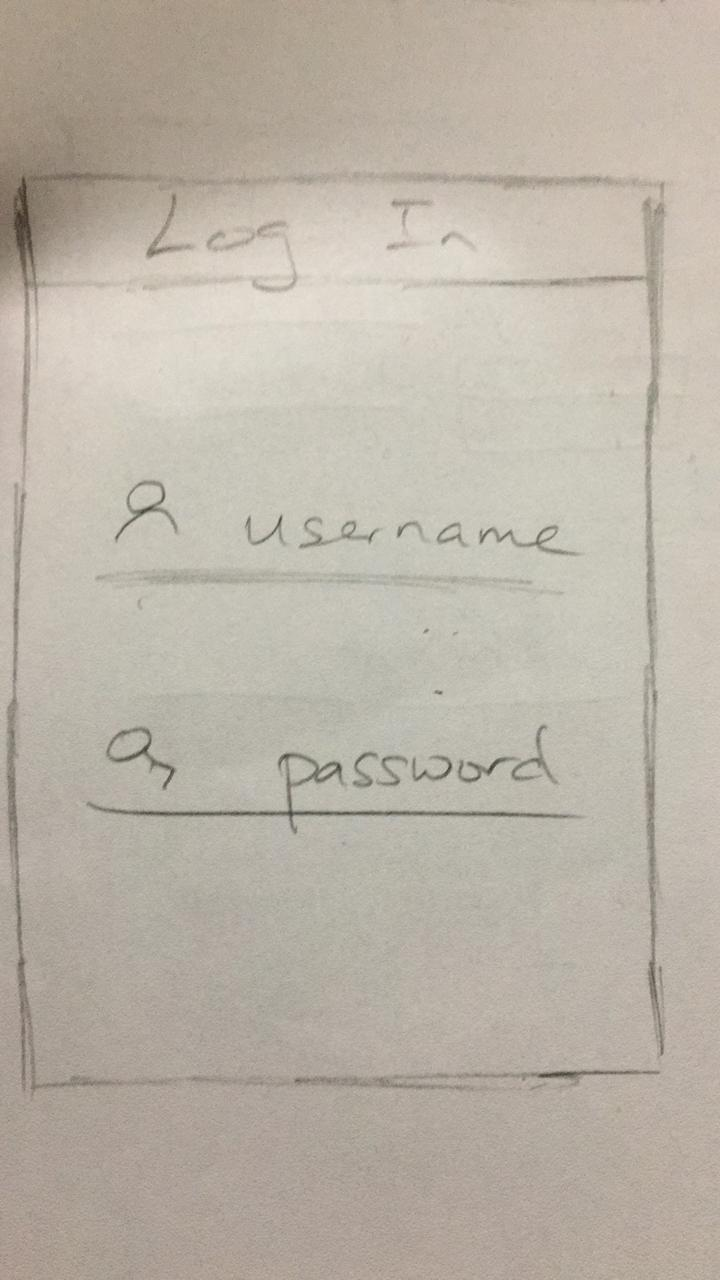 Log In
username
password